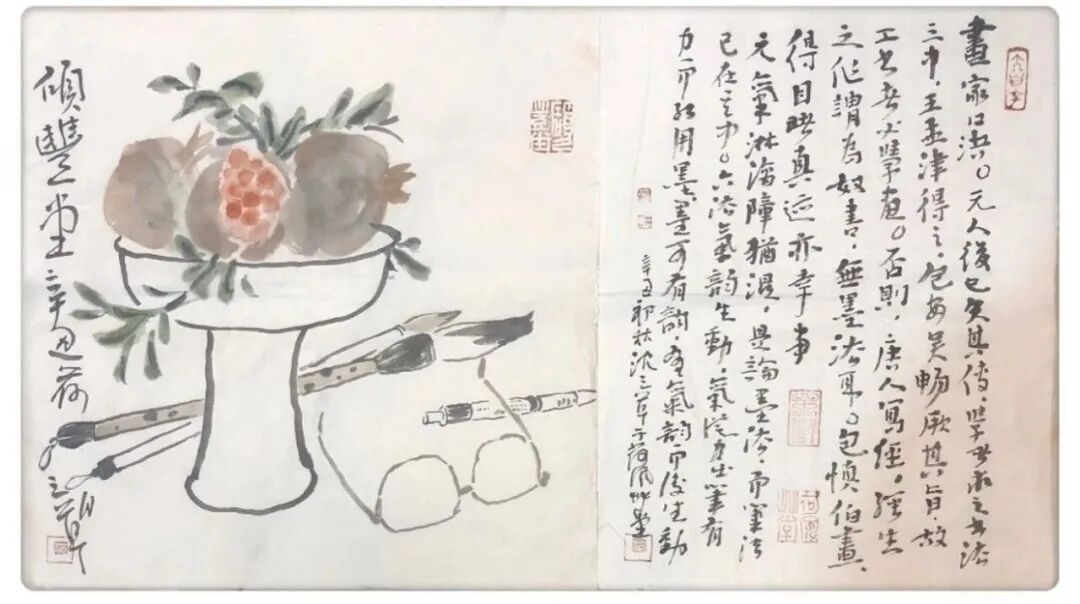 畫家口法。元人後已失其傳,學者求之書法
三中,王孟津得之,包安吳暢厥其旨,故
工書者必學畫。否則,唐人寫經,經生
之作謂為奴書,無墨法耳。包慎伯畫,
得目睹真迹亦幸事
元氣淋漓障猶濕,是論墨法,而筆法
已在其中。六法氣韻生動,氣從力出筆有
力而後用墨墨可有韻,有氣韻而後生動
辛丑初秋沈三草于荷風草堂
豐堂 辛丑荷月三草